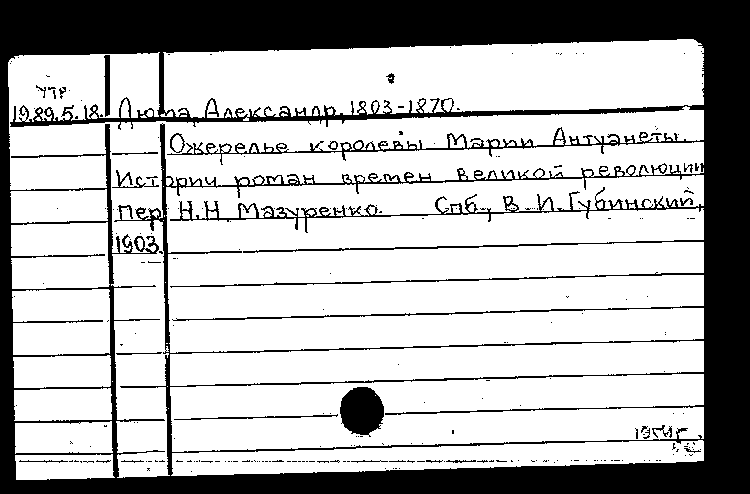 утр
19.89.5.18. Дюма, Александр, 1803-1870.
Ожерелье королевы Марии Антуанеты.
Историч роман времен великой революции
Пер Н.Н. Мазуренко. Спб., В. И. Губинский,
1903.